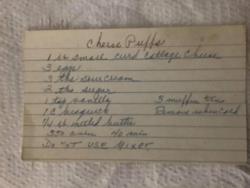 Cheese Puffs
1 lb small curd cottage cheese
3 eggs
3 tbs sour cream
2 tbs sugar
1 tsp vanilla 5 muffin tins
1 C bisquick
1/4 lb melted butter
350 oven 40 min
Do not USE MIXER